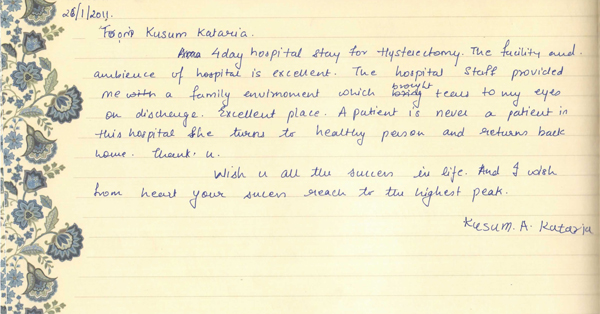 26/1/2011.
From Kusum Kataria.
4 day hospital stay for Hysterectomy. The facility and
ambience of hospital is excellent. The hospital staff provided
me with a family envirnoment which brought tears to my eyes
on discharge. Excellent place. A patient is never a patient in
this hospital She turns to healthy person and returns back
home. Thank. u.
Wish u all the success in life. And I wish
from heart your sucess reach to the highest peak.
Kusum. A. Kataria